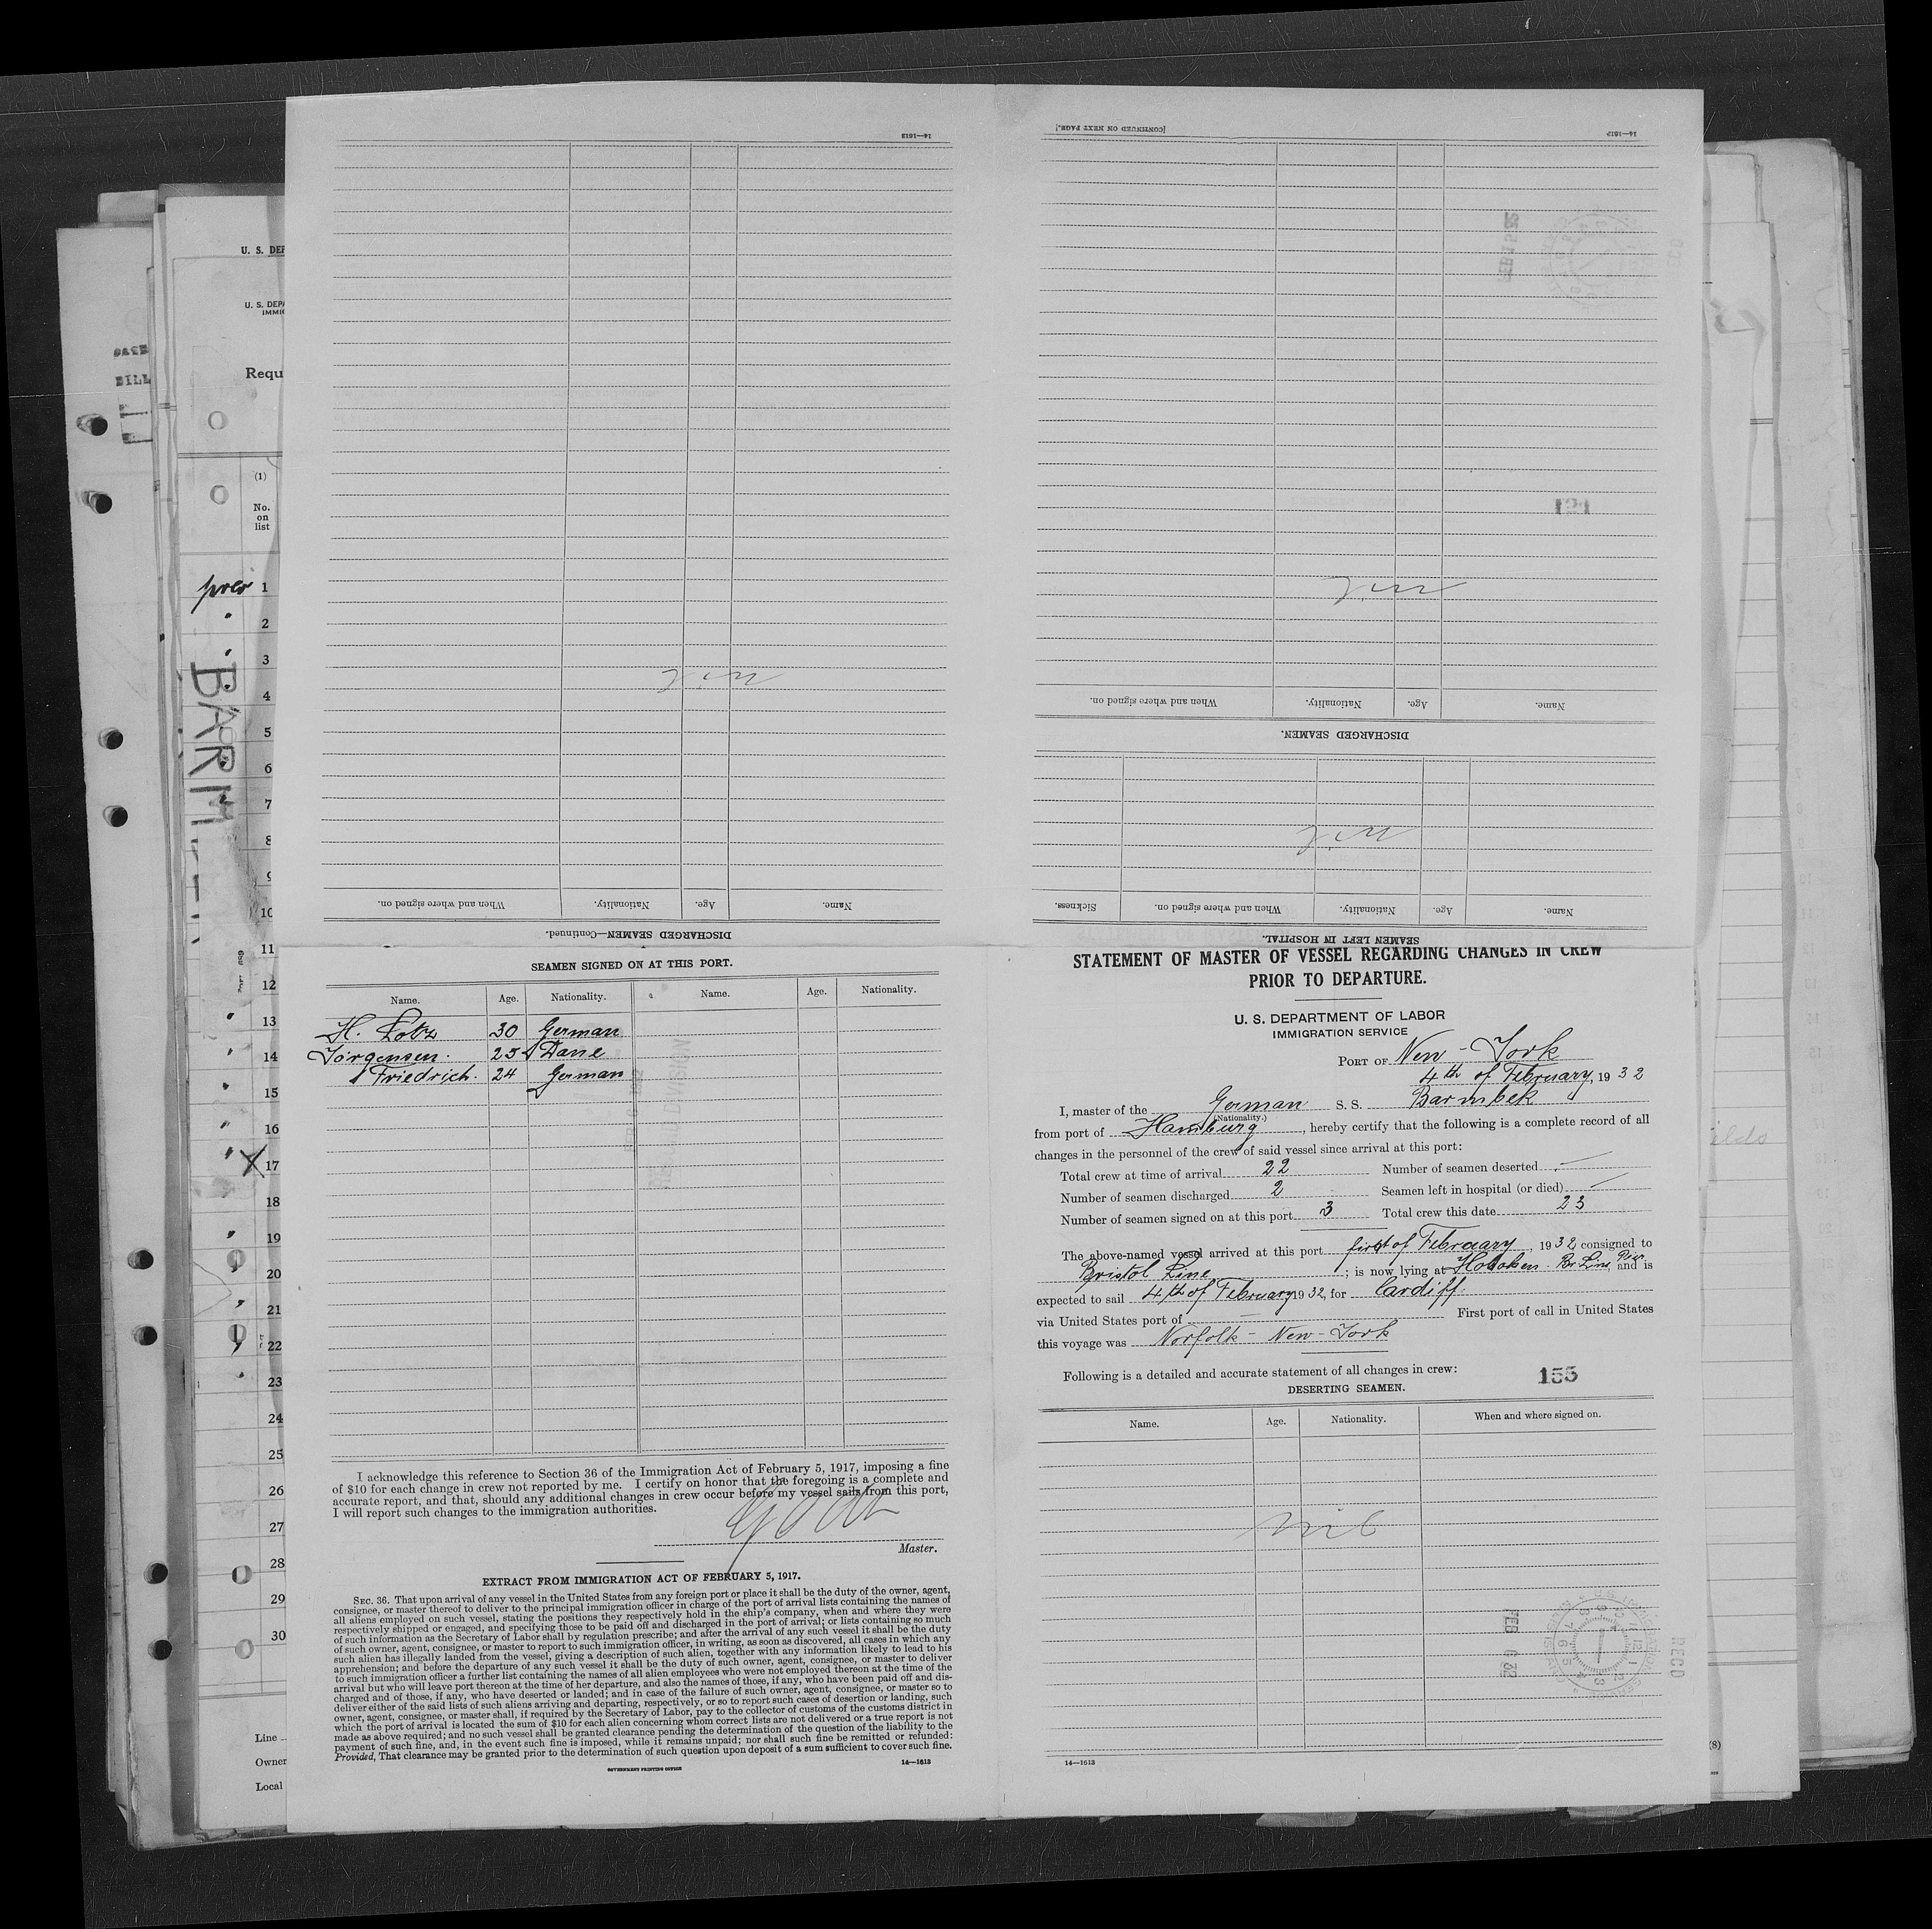 STATEMENT OF MASTER OF VESSEL REGARDING CHANGES IN CREW
PRIOR TO DEPARTURE.
U. S. DEPARTMENT OF LABOR
IMMIGRATION SERVICE
PORT OF New-York
4th of February, 1932
I, master of the German S. S. Barmbek
(Nationality.)
from port of Hamburg, hereby certify that the following is a complete record of all
changes in the personnel of the crew of said vessel since arrival at this port:
Total crew at time of arrival 22 Number of seamen deserted —
Number of seamen discharged 2 Seamen left in hospital (or died) —
Number of seamen signed on at this port 3 Total crew this date 23
The above-named vessel arrived at this port first of February, 1932, consigned to
Bristol Line; is now lying at Hoboken Br Line Pier, and is
expected to sail 4th of February 1932, for Cardiff.
via United States port of First port of call in United States
this voyage was Norfolk - New-York
Following is a detailed and accurate statement of all changes in crew:
155
DESERTING SEAMEN.
Name. Age. Nationality. When and where signed on.
nil
FEB 6 32
RECD
14—1613
SEAMEN LEFT IN HOSPITAL.
Name. Age. Nationality. When and where signed on. Sickness.
nil
DISCHARGED SEAMEN.
Name. Age. Nationality. When and where signed on.
nil
14—1613
[CONTINUED ON NEXT PAGE.]
DISCHARGED SEAMEN—Continued.
Name. Age. Nationality. When and where signed on.
nil
14—1613
SEAMEN SIGNED ON AT THIS PORT.
Name. Age. Nationality. Name. Age. Nationality.
H. Lotz 30 German
Jörgensen. 25 Dane
Friedrich. 24 German
I acknowledge this reference to Section 36 of the Immigration Act of February 5, 1917, imposing a fine
of $10 for each change in crew not reported by me. I certify on honor that the foregoing is a complete and
accurate report, and that, should any additional changes in crew occur before my vessel sails from this port,
I will report such changes to the immigration authorities.
Master.
EXTRACT FROM IMMIGRATION ACT OF FEBRUARY 5, 1917.
SEC. 36. That upon arrival of any vessel in the United States from any foreign port or place it shall be the duty of the owner, agent,
consignee, or master thereof to deliver to the principal immigration officer in charge of the port of arrival lists containing the names of
all aliens employed on such vessel, stating the positions they respectively hold in the ship's company, when and where they were
respectively shipped or engaged, and specifying those to be paid off and discharged in the port of arrival; or lists containing so much
of such information as the Secretary of Labor shall by regulation prescribe; and after the arrival of any such vessel it shall be the duty
of such owner, agent, consignee, or master to report to such immigration officer, in writing, as soon as discovered, all cases in which any
such alien has illegally landed from the vessel, giving a description of such alien, together with any information likely to lead to his
apprehension; and before the departure of any such vessel it shall be the duty of such owner, agent, consignee, or master to deliver
to such immigration officer a further list containing the names of all alien employees who were not employed thereon at the time of the
arrival but who will leave port thereon at the time of her departure, and also the names of those, if any, who have been paid off and dis-
charged and of those, if any, who have deserted or landed; and in case of the failure of such owner, agent, consignee, or master so to
deliver either of the said lists of such aliens arriving and departing, respectively, or so to report such cases of desertion or landing, such
owner, agent, consignee, or master shall, if required by the Secretary of Labor, pay to the collector of customs of the customs district in
which the port of arrival is located the sum of $10 for each alien concerning whom correct lists are not delivered or a true report is not
made as above required; and no such vessel shall be granted clearance pending the determination of the question of the liability to the
payment of such fine, and, in the event such fine is imposed, while it remains unpaid; nor shall such fine be remitted or refunded:
Provided, That clearance may be granted prior to the determination of such question upon deposit of a sum sufficient to cover such fine.
GOVERNMENT PRINTING OFFICE
14—1613
U. S. DEP
U. S. DEPA
IMMIG
Requ
(1)
No.
on
list
prev 1
2
3
4
5
6
7
8
9
10
11
12
13
14
15
16
17
18
19
20
21
22
23
24
25
26
27
28
29
30
Line
Owner
Local
(8)